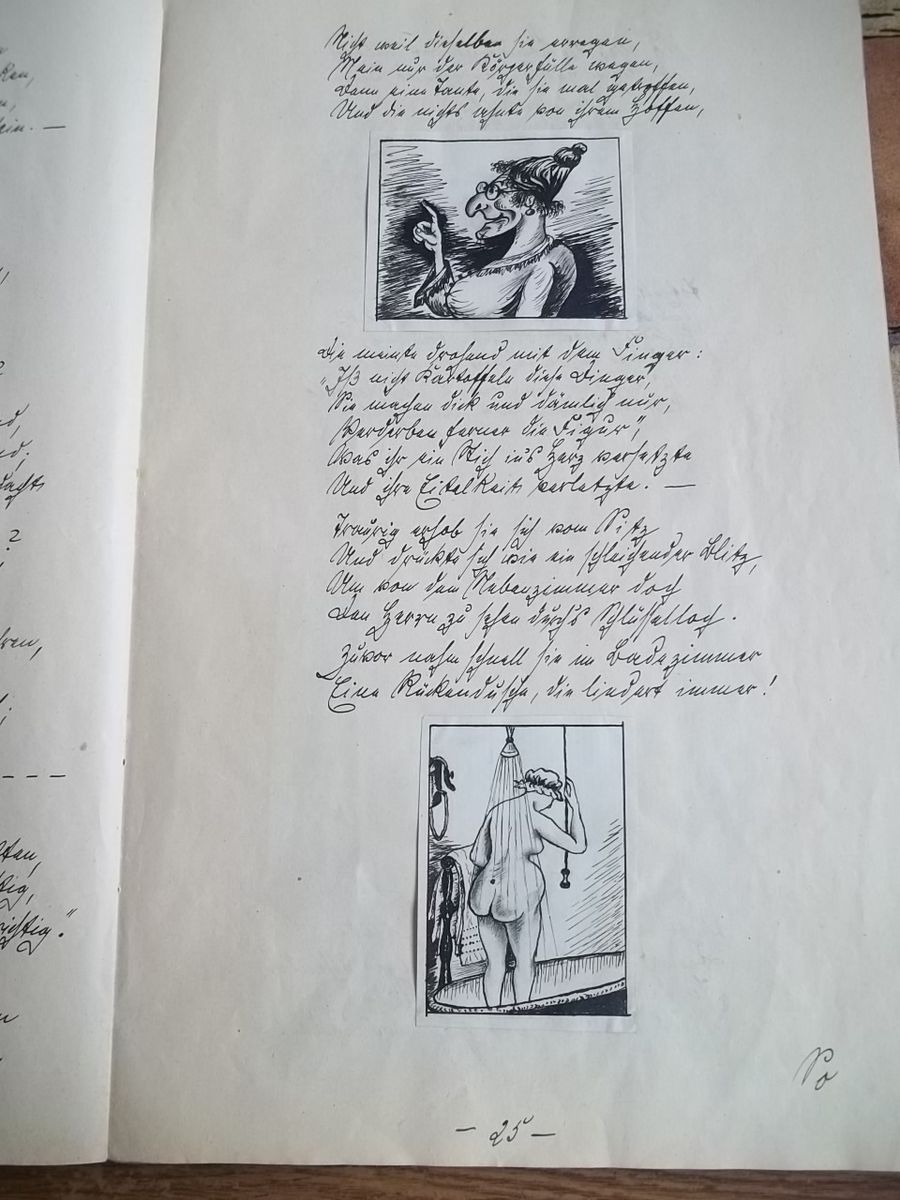 ken,
n,
ein. —
nd,
nd;
dacht
?
hren,
- - -
ften,
tig,
richtig."
Nicht weil dieselben sie erregen,
Nein nur der Körperfülle wegen,
Denn eine Tante, die sie mal getroffen,
Und die nichts ahnte von ihrem Hoffen,
Die meinte drohend mit dem Finger:
"Iß nicht Kartoffeln diese Dinger,
Sie machen dick und dämlich nur,
Verderben ferner die Figur",
Was ihr ein Stich in's Herz versetzte
Und ihre Eitelkeit verletzte. —
Traurig erhob sie sich vom Sitz
Und drückte sich wie ein schleichender Blitz,
Um von dem Nebenzimmer doch
Den Herrn zu sehen durch's Schlüsselloch.
Zuvor nahm schnell sie im Badezimmer
Eine Rückendusche, die lindert immer!
So
- 25 -